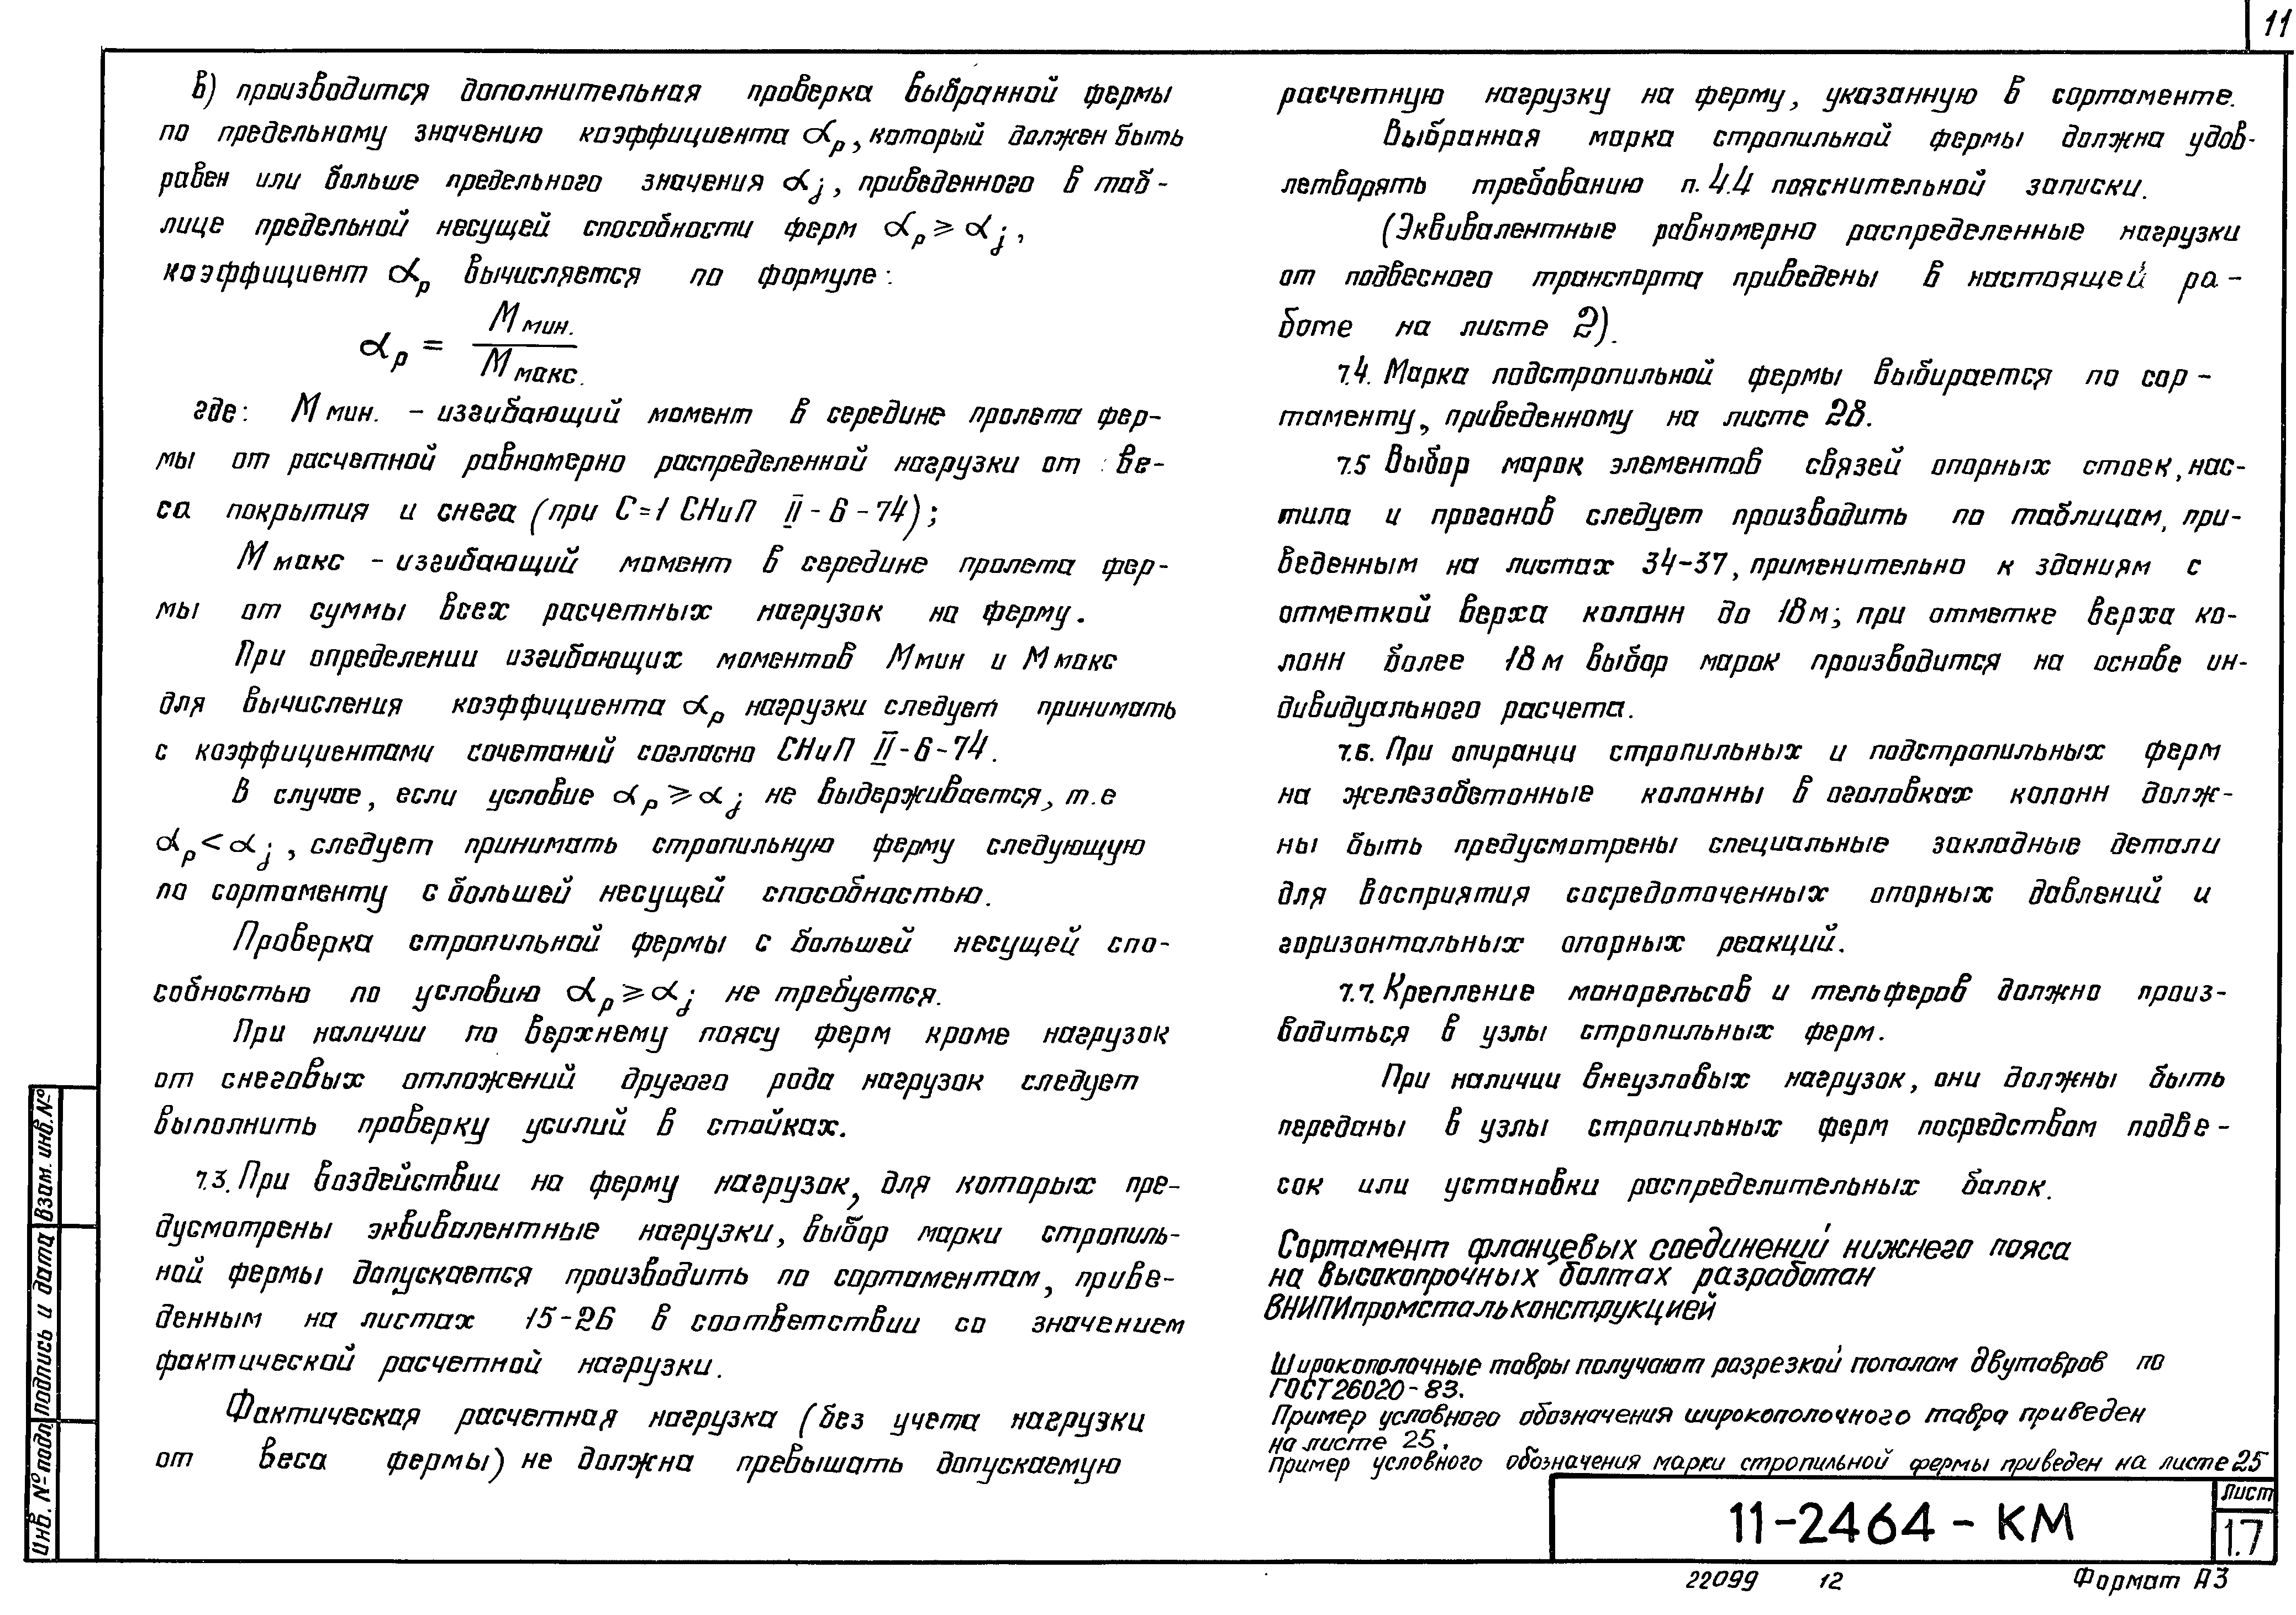 11
в) производится дополнительная проверка выбранной фермы
по предельному значению коэффициента αр, который должен быть
равен или больше предельного значения αj, приведенного в таб-
лице предельной несущей способности ферм αр ⩾ αj,
коэффициент αр вычисляется по формуле:
αр = Ммин. / Ммакс.
где: Ммин. – изгибающий момент в середине пролета фер-
мы от расчетной равномерно распределенной нагрузки от ве-
са покрытия и снега (при С=1 СНиП II-6-74);
Ммакс – изгибающий момент в середине пролета фер-
мы от суммы всех расчетных нагрузок на ферму.
При определении изгибающих моментов Ммин и Ммакс
для вычисления коэффициента αр нагрузки следует принимать
с коэффициентами сочетаний согласно СНиП II-6-74.
В случае, если условие αр ⩾ αj не выдерживается, т.е
αр < αj, следует принимать стропильную ферму следующую
по сортаменту с большей несущей способностью.
Проверка стропильной фермы с большей несущей спо-
собностью по условию αр ⩾ αj не требуется.
При наличии по верхнему поясу ферм кроме нагрузок
от снеговых отложений другого рода нагрузок следует
выполнить проверку усилий в стойках.
7.3. При воздействии на ферму нагрузок, для которых пре-
дусмотрены эквивалентные нагрузки, выбор марки стропиль-
ной фермы допускается производить по сортаментам, приве-
денным на листах 15-26 в соответствии со значением
фактической расчетной нагрузки.
Фактическая расчетная нагрузка (без учета нагрузки
от веса фермы) не должна превышать допускаемую
расчетную нагрузку на ферму, указанную в сортаменте.
Выбранная марка стропильной фермы должна удов-
летворять требованию п. 4.4 пояснительной записки.
(Эквивалентные равномерно распределенные нагрузки
от подвесного транспорта приведены в настоящей ра-
боте на листе 2).
7.4. Марка подстропильной фермы выбирается по сор-
таменту, приведенному на листе 28.
7.5 Выбор марок элементов связей опорных стоек, нас-
тила и прогонов следует производить по таблицам, при-
веденным на листах 34-37, применительно к зданиям с
отметкой верха колонн до 18м; при отметке верха ко-
лонн более 18м выбор марок производится на основе ин-
дивидуального расчета.
7.6. При опирании стропильных и подстропильных ферм
на железобетонные колонны в оголовках колонн долж-
ны быть предусмотрены специальные закладные детали
для восприятия сосредоточенных опорных давлений и
горизонтальных опорных реакций.
7.7. Крепление монорельсов и тельферов должно произ-
водиться в узлы стропильных ферм.
При наличии внеузловых нагрузок, они должны быть
переданы в узлы стропильных ферм посредством подве-
сок или установки распределительных балок.
Сортамент фланцевых соединений нижнего пояса
на высокопрочных болтах разработан
ВНИПИпромстальконструкцией
Широкополочные тавры получают разрезкой пополам двутавров по
ГОСТ 26020-83.
Пример условного обозначения широкополочного тавра приведен
на листе 25.
Пример условного обозначения марки стропильной фермы приведен на листе 25
11-2464-КМ
Лист
1.7
22099 12 Формат А3
Взам. инв.№
Подпись и дата
Инв. №подл